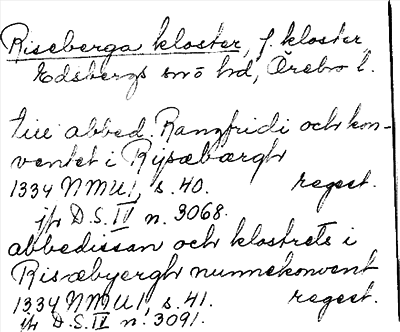 Riseberga kloster, f. kloster,
Edsbergs sn o hd, Örebro l.
till abbed. Rangfridi och kon-
ventet i Rysæbærgh
1334 NMU1, s. 40. regest.
jfr D.S. IV n. 3068.
abbedissan och klostrets i
Risæbyergh nunnekonvent
1334 NMU1, s. 41. regest.
jfr D.S. IV n. 3091.